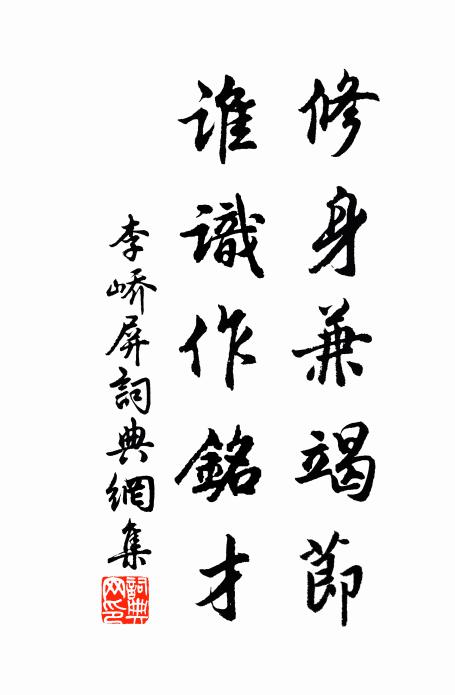 修身兼竭節
誰識作銘才
李嶠屏詞典網集
詞典網印